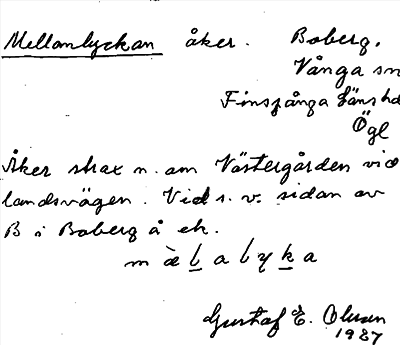 Mellanlyckan åker. Boberg.
Vånga sn
Finspånga läns hd
Ögl
Åker strax n. om Västergården vid
landsvägen. Vid s.v. sidan av
B i Boberg å ek.
m à l a l y k a
Gustaf E. Olsson
1927